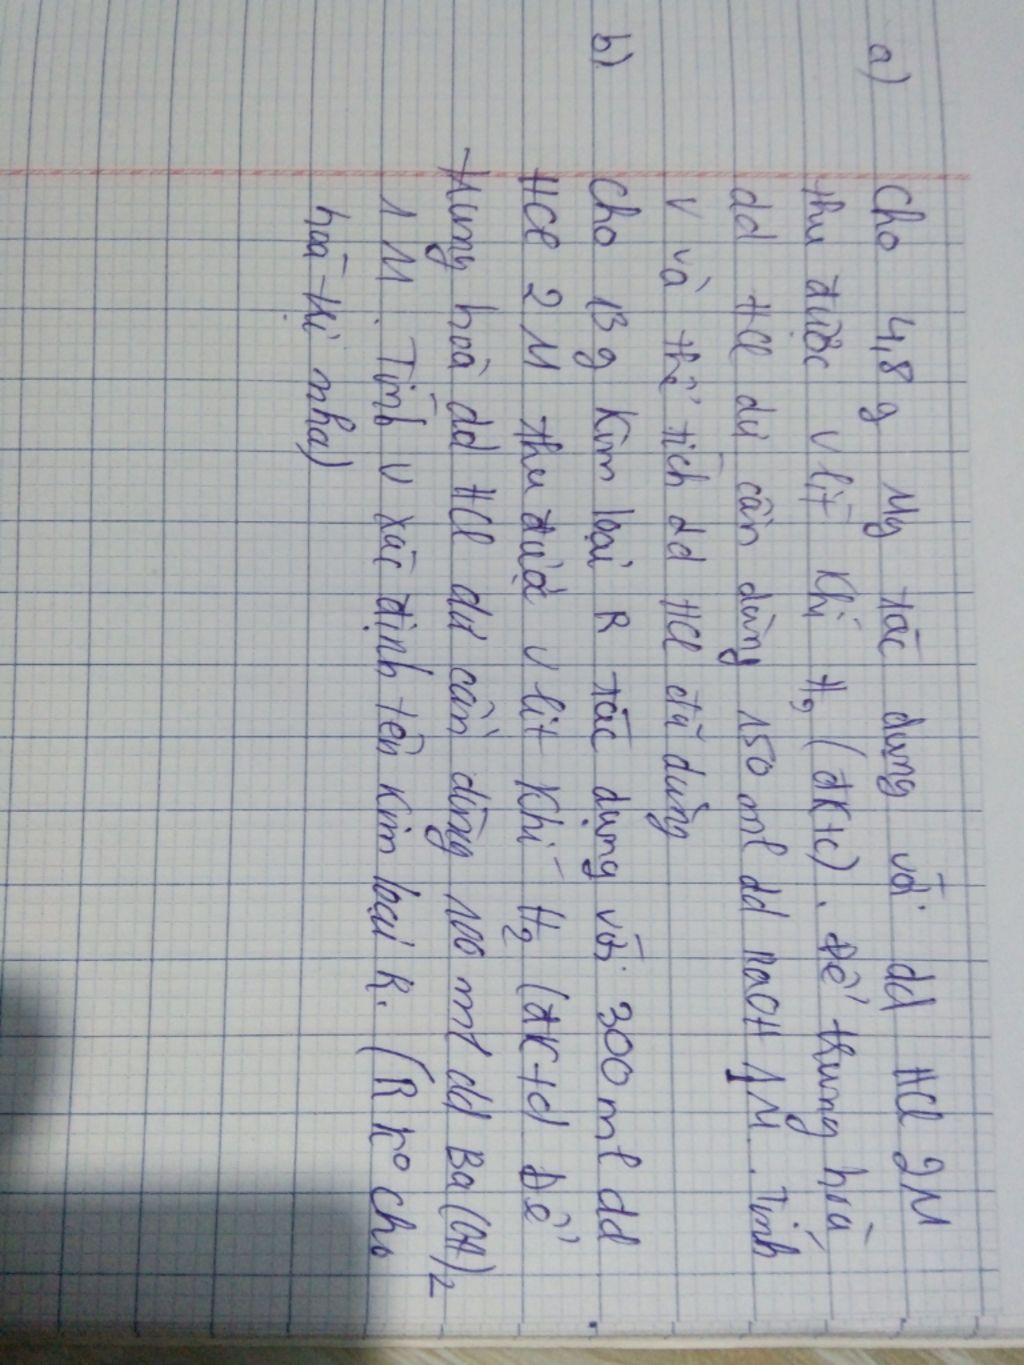 a) Cho 4,8 g Mg tác dụng với dd HCl 2M
thu được V lit Khí H2 (đktc). Để thung hoà
dd HCl dư cần dùng 150 ml dd NaOH 1M. Tính
V và thể tích dd HCl đã dùng
b) Cho 13 g Kim loại R tác dụng với 300 ml dd
HCl 2 M thu đượ V lit Khí H2 (đktd Để
thung hoà dd HCl dư cần dùng 100 ml dd Ba(OH)2
1 M. Tính V xác định tên kim loại R. (R ko cho
hoá trị nha)